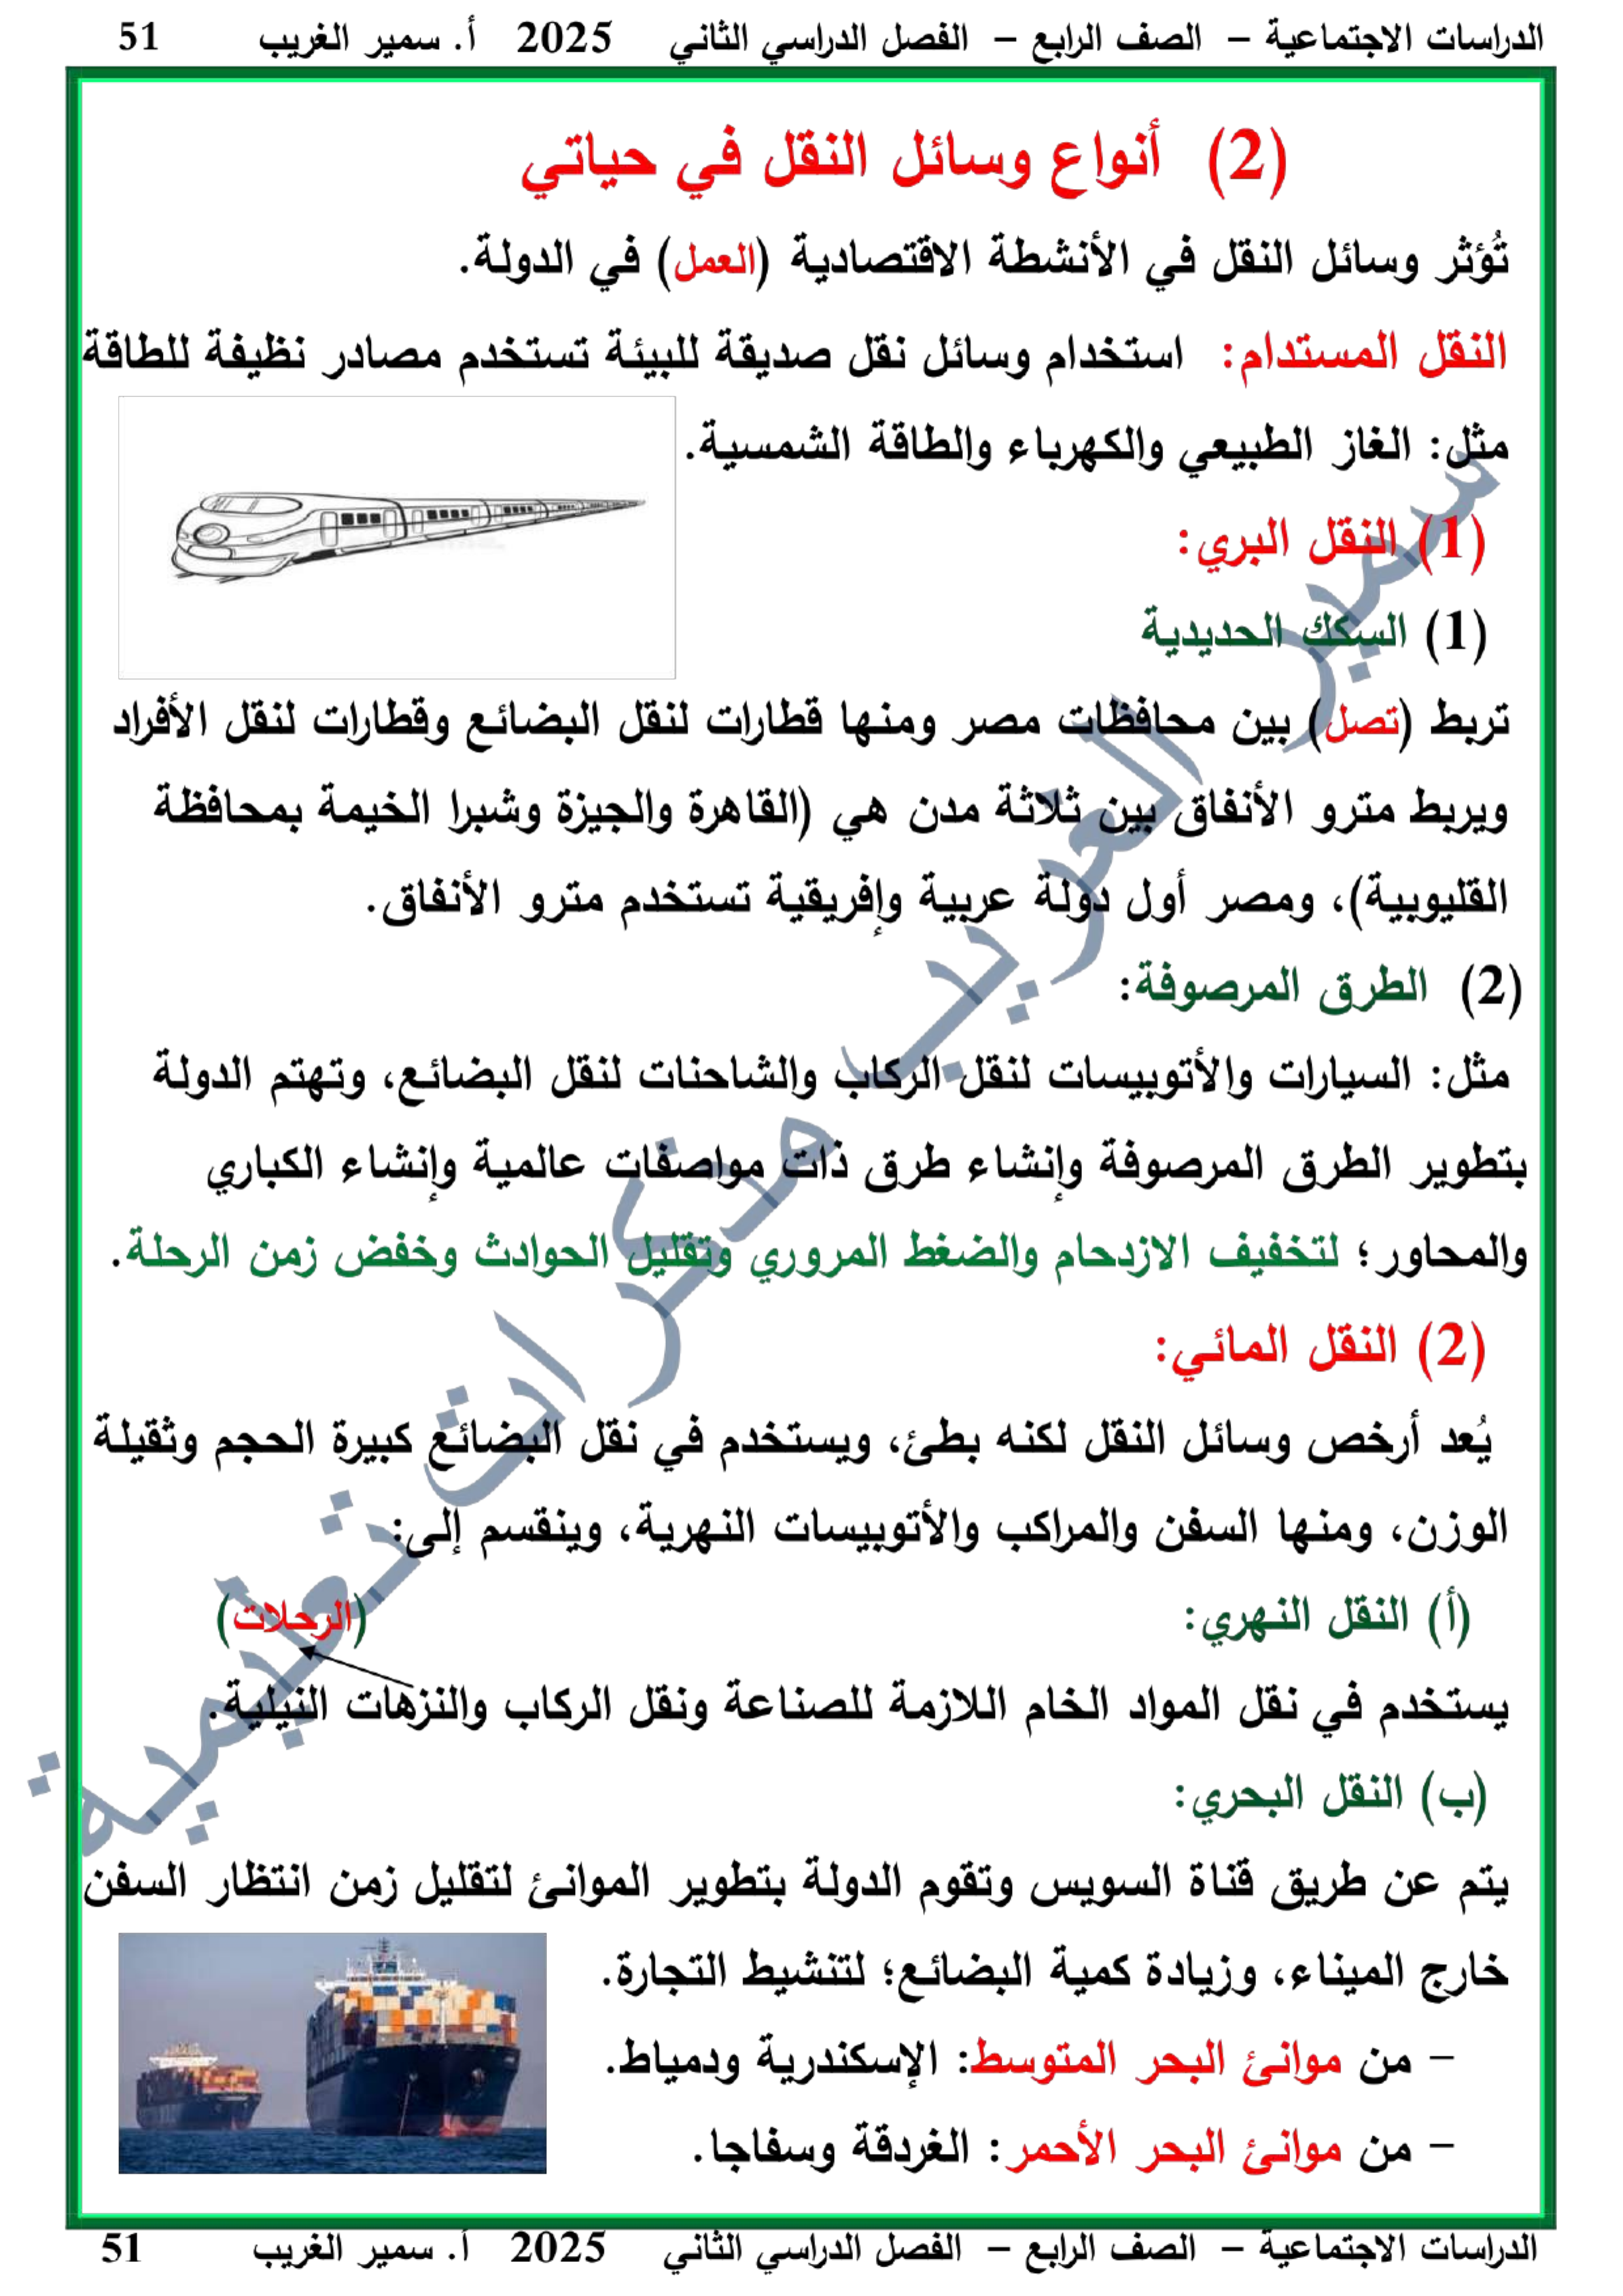 الدراسات الاجتماعية – الصف الرابع – الفصل الدراسي الثاني 2025 أ. سمير الغريب 51
(2) أنواع وسائل النقل في حياتي
تُؤثر وسائل النقل في الأنشطة الاقتصادية (العمل) في الدولة.
النقل المستدام: استخدام وسائل نقل صديقة للبيئة تستخدم مصادر نظيفة للطاقة
مثل: الغاز الطبيعي والكهرباء والطاقة الشمسية.
(1) النقل البري:
(1) السكك الحديدية
تربط (تصل) بين محافظات مصر ومنها قطارات لنقل البضائع وقطارات لنقل الأفراد
ويربط مترو الأنفاق بين ثلاثة مدن هي (القاهرة والجيزة وشبرا الخيمة بمحافظة
القليوبية)، ومصر أول دولة عربية وإفريقية تستخدم مترو الأنفاق.
(2) الطرق المرصوفة:
مثل: السيارات والأتوبيسات لنقل الركاب والشاحنات لنقل البضائع، وتهتم الدولة
بتطوير الطرق المرصوفة وإنشاء طرق ذات مواصفات عالمية وإنشاء الكباري
والمحاور؛ لتخفيف الازدحام والضغط المروري وتقليل الحوادث وخفض زمن الرحلة.
(2) النقل المائي:
يُعد أرخص وسائل النقل لكنه بطئ، ويستخدم في نقل البضائع كبيرة الحجم وثقيلة
الوزن، ومنها السفن والمراكب والأتوبيسات النهرية، وينقسم إلى:
(أ) النقل النهري: (الرحلات)
يستخدم في نقل المواد الخام اللازمة للصناعة ونقل الركاب والنزهات النيلية.
(ب) النقل البحري:
يتم عن طريق قناة السويس وتقوم الدولة بتطوير الموانئ لتقليل زمن انتظار السفن
خارج الميناء، وزيادة كمية البضائع؛ لتنشيط التجارة.
– من موانئ البحر المتوسط: الإسكندرية ودمياط.
– من موانئ البحر الأحمر: الغردقة وسفاجا.
سمير الغريب مذكرات تعليمية
الدراسات الاجتماعية – الصف الرابع – الفصل الدراسي الثاني 2025 أ. سمير الغريب 51